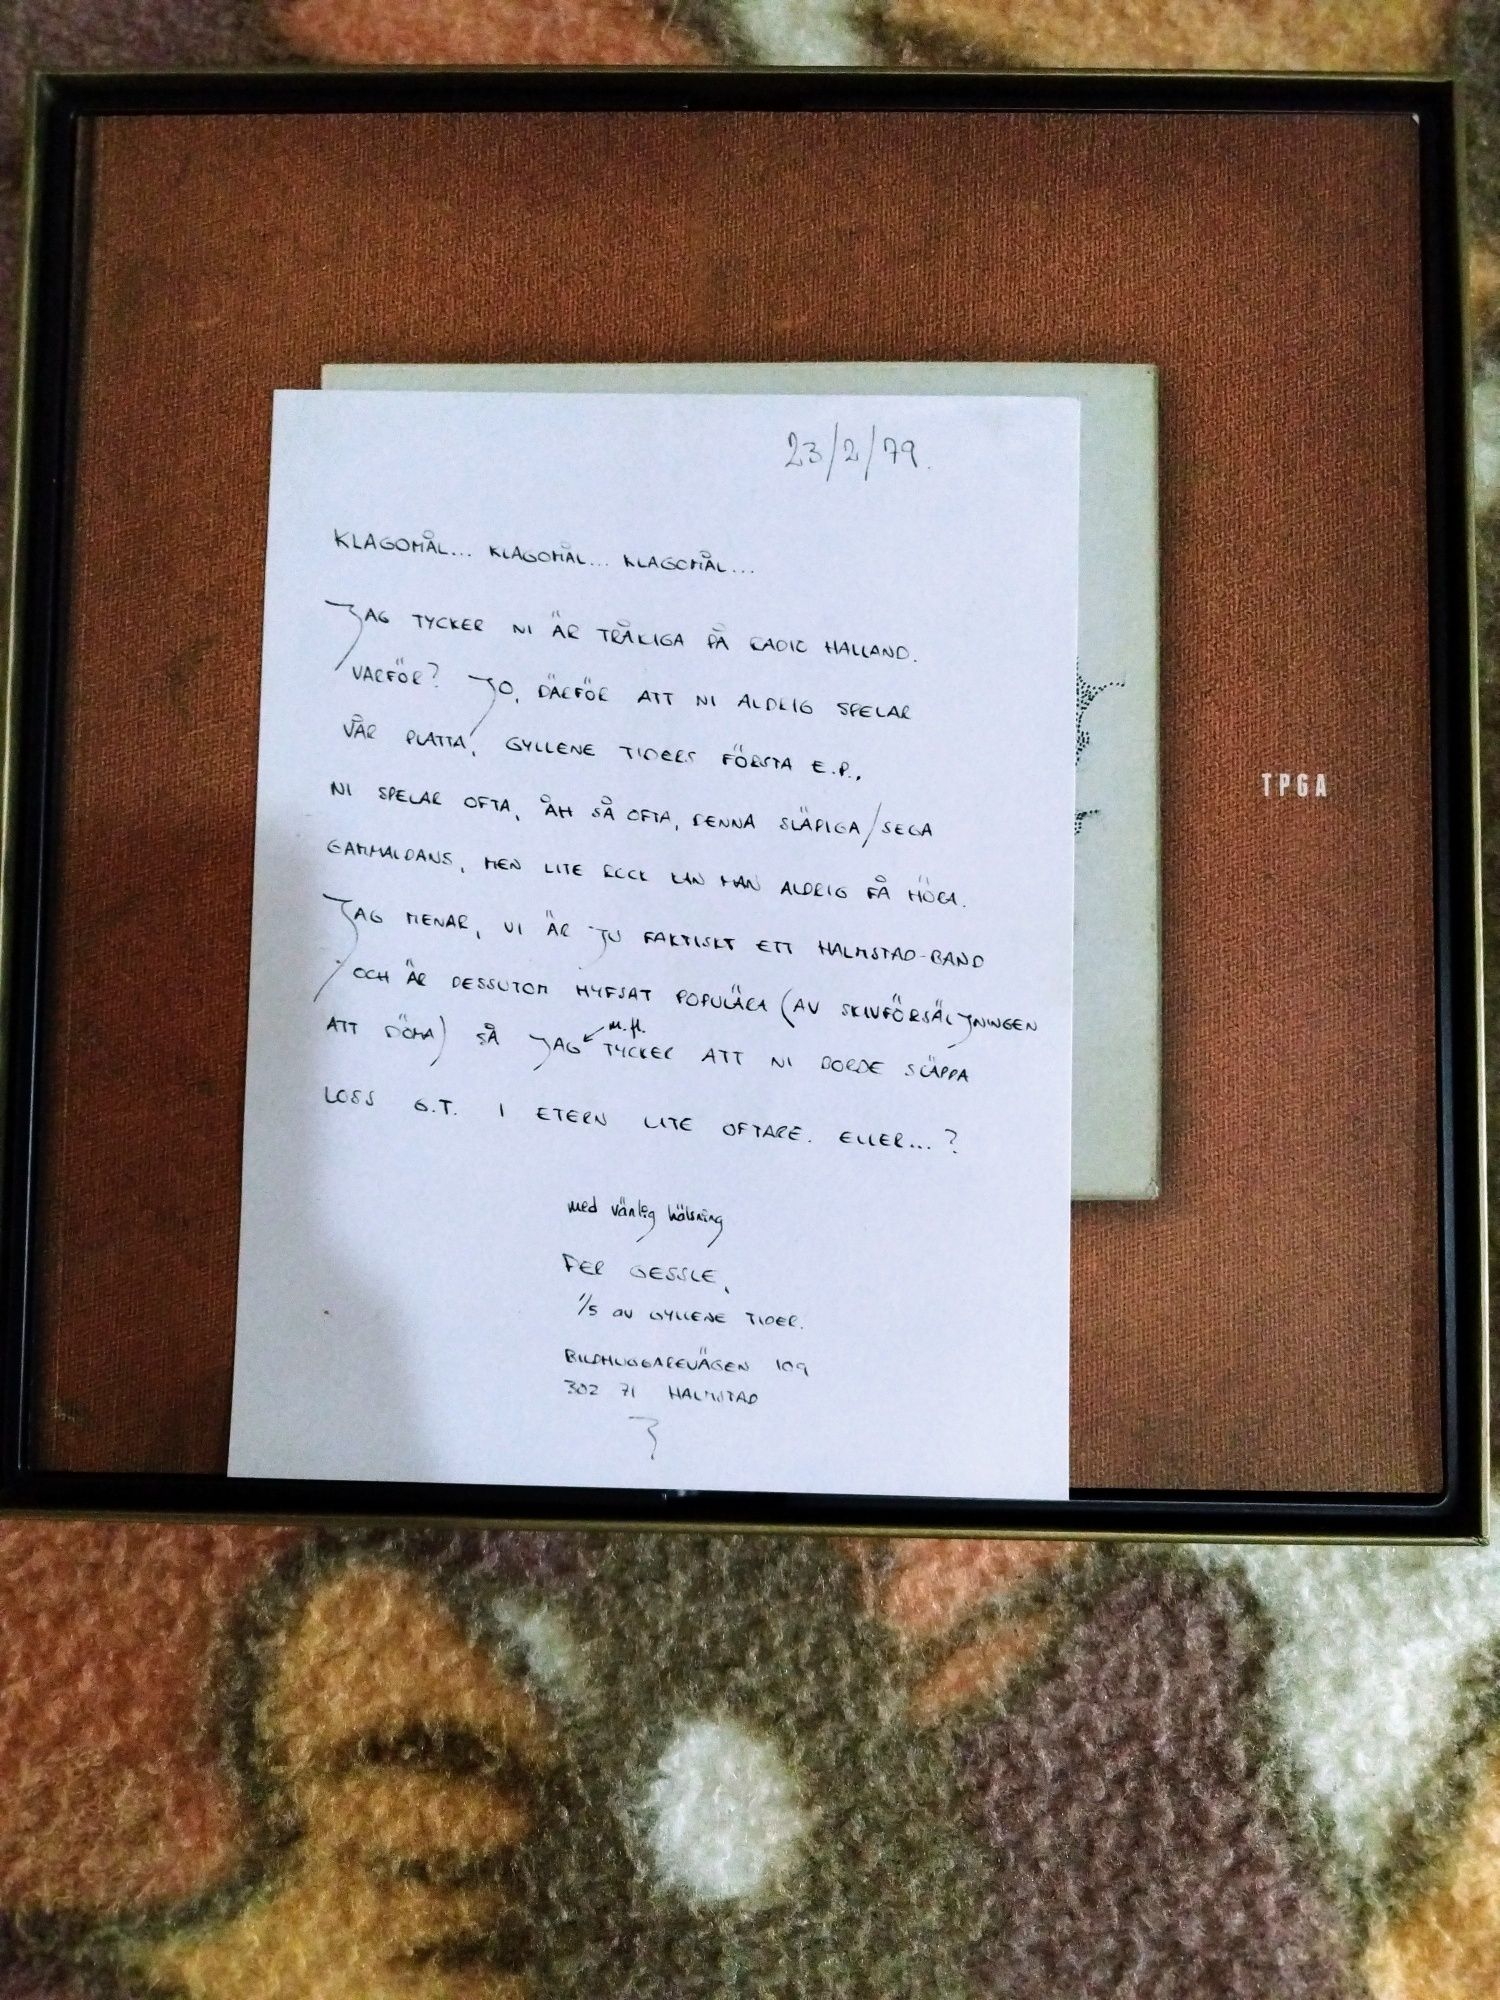 23/2/79.
KLAGOMÅL... KLAGOMÅL... KLAGOMÅL...
JAG TYCKER NI ÄR TRÅKIGA PÅ RADIO HALLAND.
VARFÖR? JO, DÄRFÖR ATT NI ALDRIG SPELAR
VÅR PLATTA, GYLLENE TIDERS FÖRSTA E.P..
NI SPELAR OFTA, ÅH SÅ OFTA, DENNA SLÄPIGA/SEGA
GAMMALDANS, MEN LITE ROCK KAN MAN ALDRIG FÅ HÖRA.
JAG MENAR, VI ÄR JU FAKTISKT ETT HALMSTAD-BAND
OCH ÄR DESSUTOM HYFSAT POPULÄRA (AV SKIVFÖRSÄLJNINGEN
ATT DÖMA) SÅ JAG m.fl. TYCKER ATT NI BORDE SLÄPPA
LOSS G.T. I ETERN LITE OFTARE. ELLER...?
med vänlig hälsning
PER GESSLE,
1/5 av GYLLENE TIDER.
BILDHUGGAREVÄGEN 109
302 71 HALMSTAD
TPGA